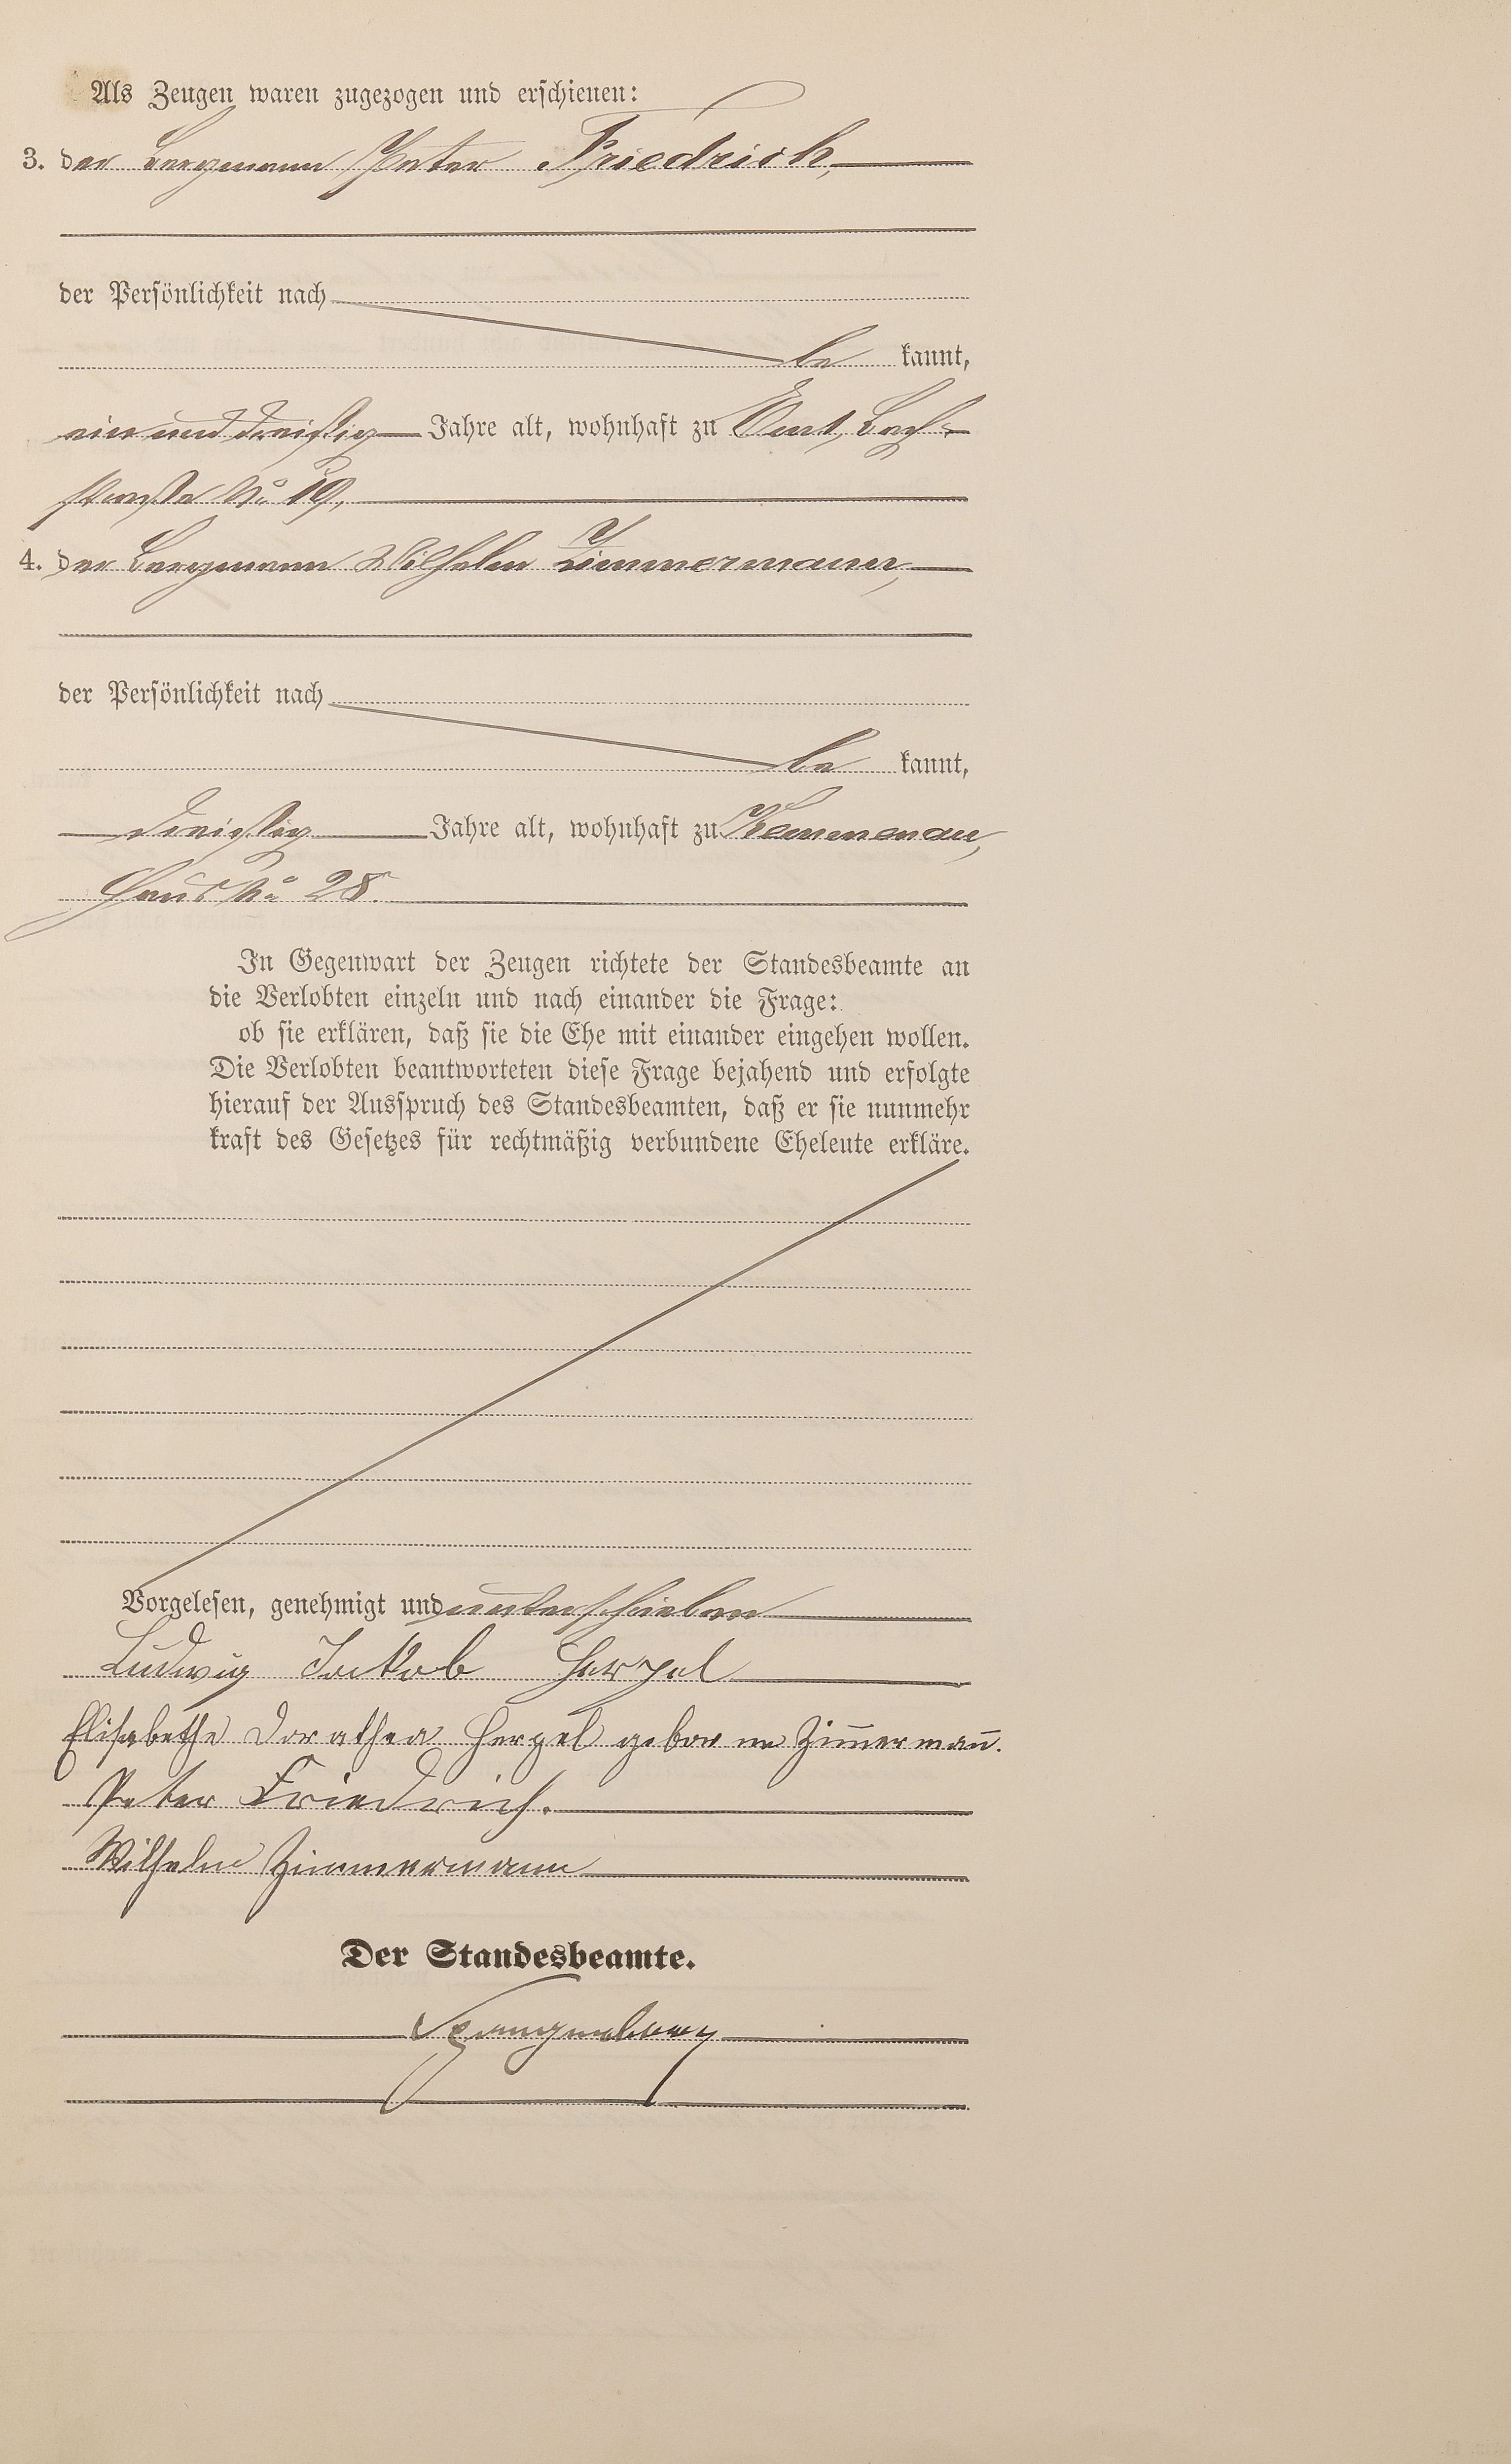 Als Zeugen waren zugezogen und erschienen:
3. der Bergmann Peter Friedrich,
der Persönlichkeit nach
be kannt,
ein und dreißig Jahre alt, wohnhaft zu Ems, Bach-
straße No 19,
4. der Bergmann Wilhelm Zimmermann,
der Persönlichkeit nach
be kannt,
dreißig Jahre alt, wohnhaft zu Kemmenau,
Haus No 28.
In Gegenwart der Zeugen richtete der Standesbeamte an
die Verlobten einzeln und nach einander die Frage:
ob sie erklären, daß sie die Ehe mit einander eingehen wollen.
Die Verlobten beantworteten diese Frage bejahend und erfolgte
hierauf der Ausspruch des Standesbeamten, daß er sie nunmehr
kraft des Gesetzes für rechtmäßig verbundene Eheleute erkläre.
Vorgelesen, genehmigt und unterschrieben
Ludwig Jakob Herpel
Elisabethe Dorathea Herpel geborne Zim̄erman̄.
Peter Friedrich.
Wilhelm Zimmermann
Der Standesbeamte.
Spangenberg